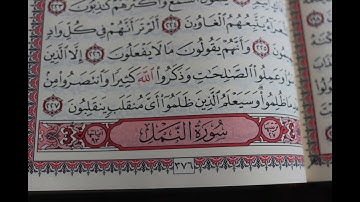 يُلْقُونَ ٱلسَّمْعَ وَأَكْثَرُهُمْ كَٰذِبُونَ ٢٢٣
وَٱلشُّعَرَآءُ يَتَّبِعُهُمُ ٱلْغَاوُۥنَ ٢٢٤ أَلَمْ تَرَ أَنَّهُمْ فِى كُلِّ وَادٍ
يَهِيمُونَ ٢٢٥ وَأَنَّهُمْ يَقُولُونَ مَا لَا يَفْعَلُونَ ٢٢٦ إِلَّا ٱلَّذِينَ
ءَامَنُوا۟ وَعَمِلُوا۟ ٱلصَّٰلِحَٰتِ وَذَكَرُوا۟ ٱللَّهَ كَثِيرًا وَٱنتَصَرُوا۟ مِنۢ
بَعْدِ مَا ظُلِمُوا۟ وَسَيَعْلَمُ ٱلَّذِينَ ظَلَمُوٓا۟ أَىَّ مُنقَلَبٍ يَنقَلِبُونَ ٢٢٧
سُورَةُ ٱلنَّمْلِ
٣٧٦